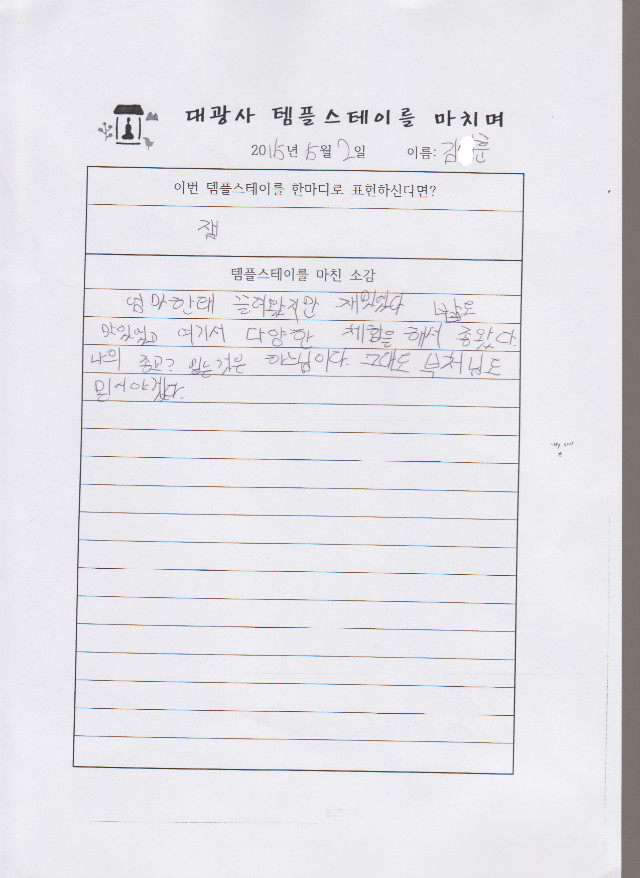 대광사 템플스테이를 마치며
2015년 5월 2일 이름: 김 훈
이번 템플스테이를 한마디로 표현하신다면?
잼
템플스테이를 마친 소감
엄마한태 끌려왔지만 재밌었다
맛있었고 여기서 다양한 체험을 해서 좋왔다.
나의 종교? 믿는것은 하느님이다. 그래도 부처님도
믿어야겠다.